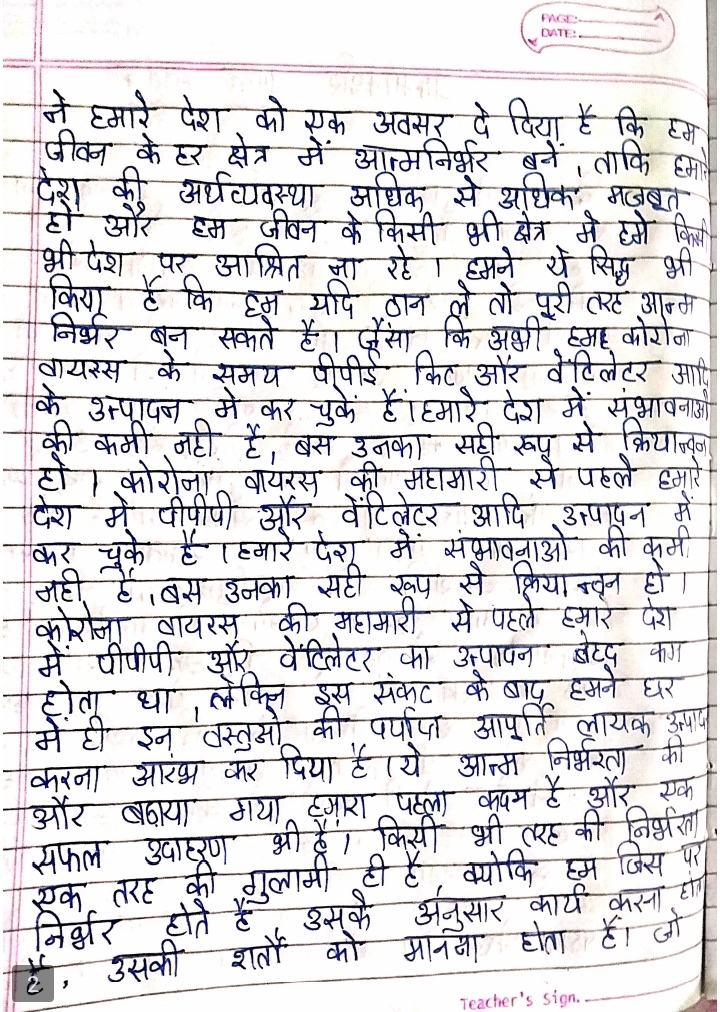 PAGE:
DATE:
ने हमारे देश को एक अवसर दे दिया है कि हम
जीवन के हर क्षेत्र में आत्मनिर्भर बनें, ताकि हमारे
देश की अर्थव्यवस्था अधिक से अधिक मजबूत
हो और हम जीवन के किसी भी क्षेत्र मे हमे किसी
भी देश पर आश्रित ना रहे । हमने ये सिद्ध भी
किया है कि हम यदि ठान ले तो पूरी तरह आत्म
निर्भर बन सकते है । जैसा कि अभी हमह कोरोना
वायरस के समय पीपीई किट और वेंटिलेटर आदि
के उत्पादन मे कर चुकें हैं । हमारे देश में संभावनाओ
की कमी नही है, बस उनका सही रूप से क्रियान्वन
हो । कोरोना वायरस की महामारी से पहले हमारे
देश में पीपीपी और वेंटिलेटर आदि उत्पादन में
कर चुके है । हमारे देश में संभावनाओ की कमी
नही है, बस उनका सही रूप से क्रियान्वन हो ।
कोरोना वायरस की महामारी से पहले हमारे देश
में पीपीपी और वेंटिलेटर का उत्पादन बेहद कम
होता था, लेकिन इस संकट के बाद हमने घर
में ही इन वस्तुओ की पर्याप्त आपूर्ति लायक
करना आरंभ कर दिया है । ये आत्म निर्भरता की
और बढाया गया हमारा पहला कदम है और एक
सफल उदाहरण भी है । किसी भी तरह की निर्भरता
एक तरह की गुलामी ही है, क्योकि हम जिस पर
निर्भर होते है उसके अनुसार कार्य करना होता
है, उसकी शर्तों को मानना होता है । जो
2
Teacher's Sign.